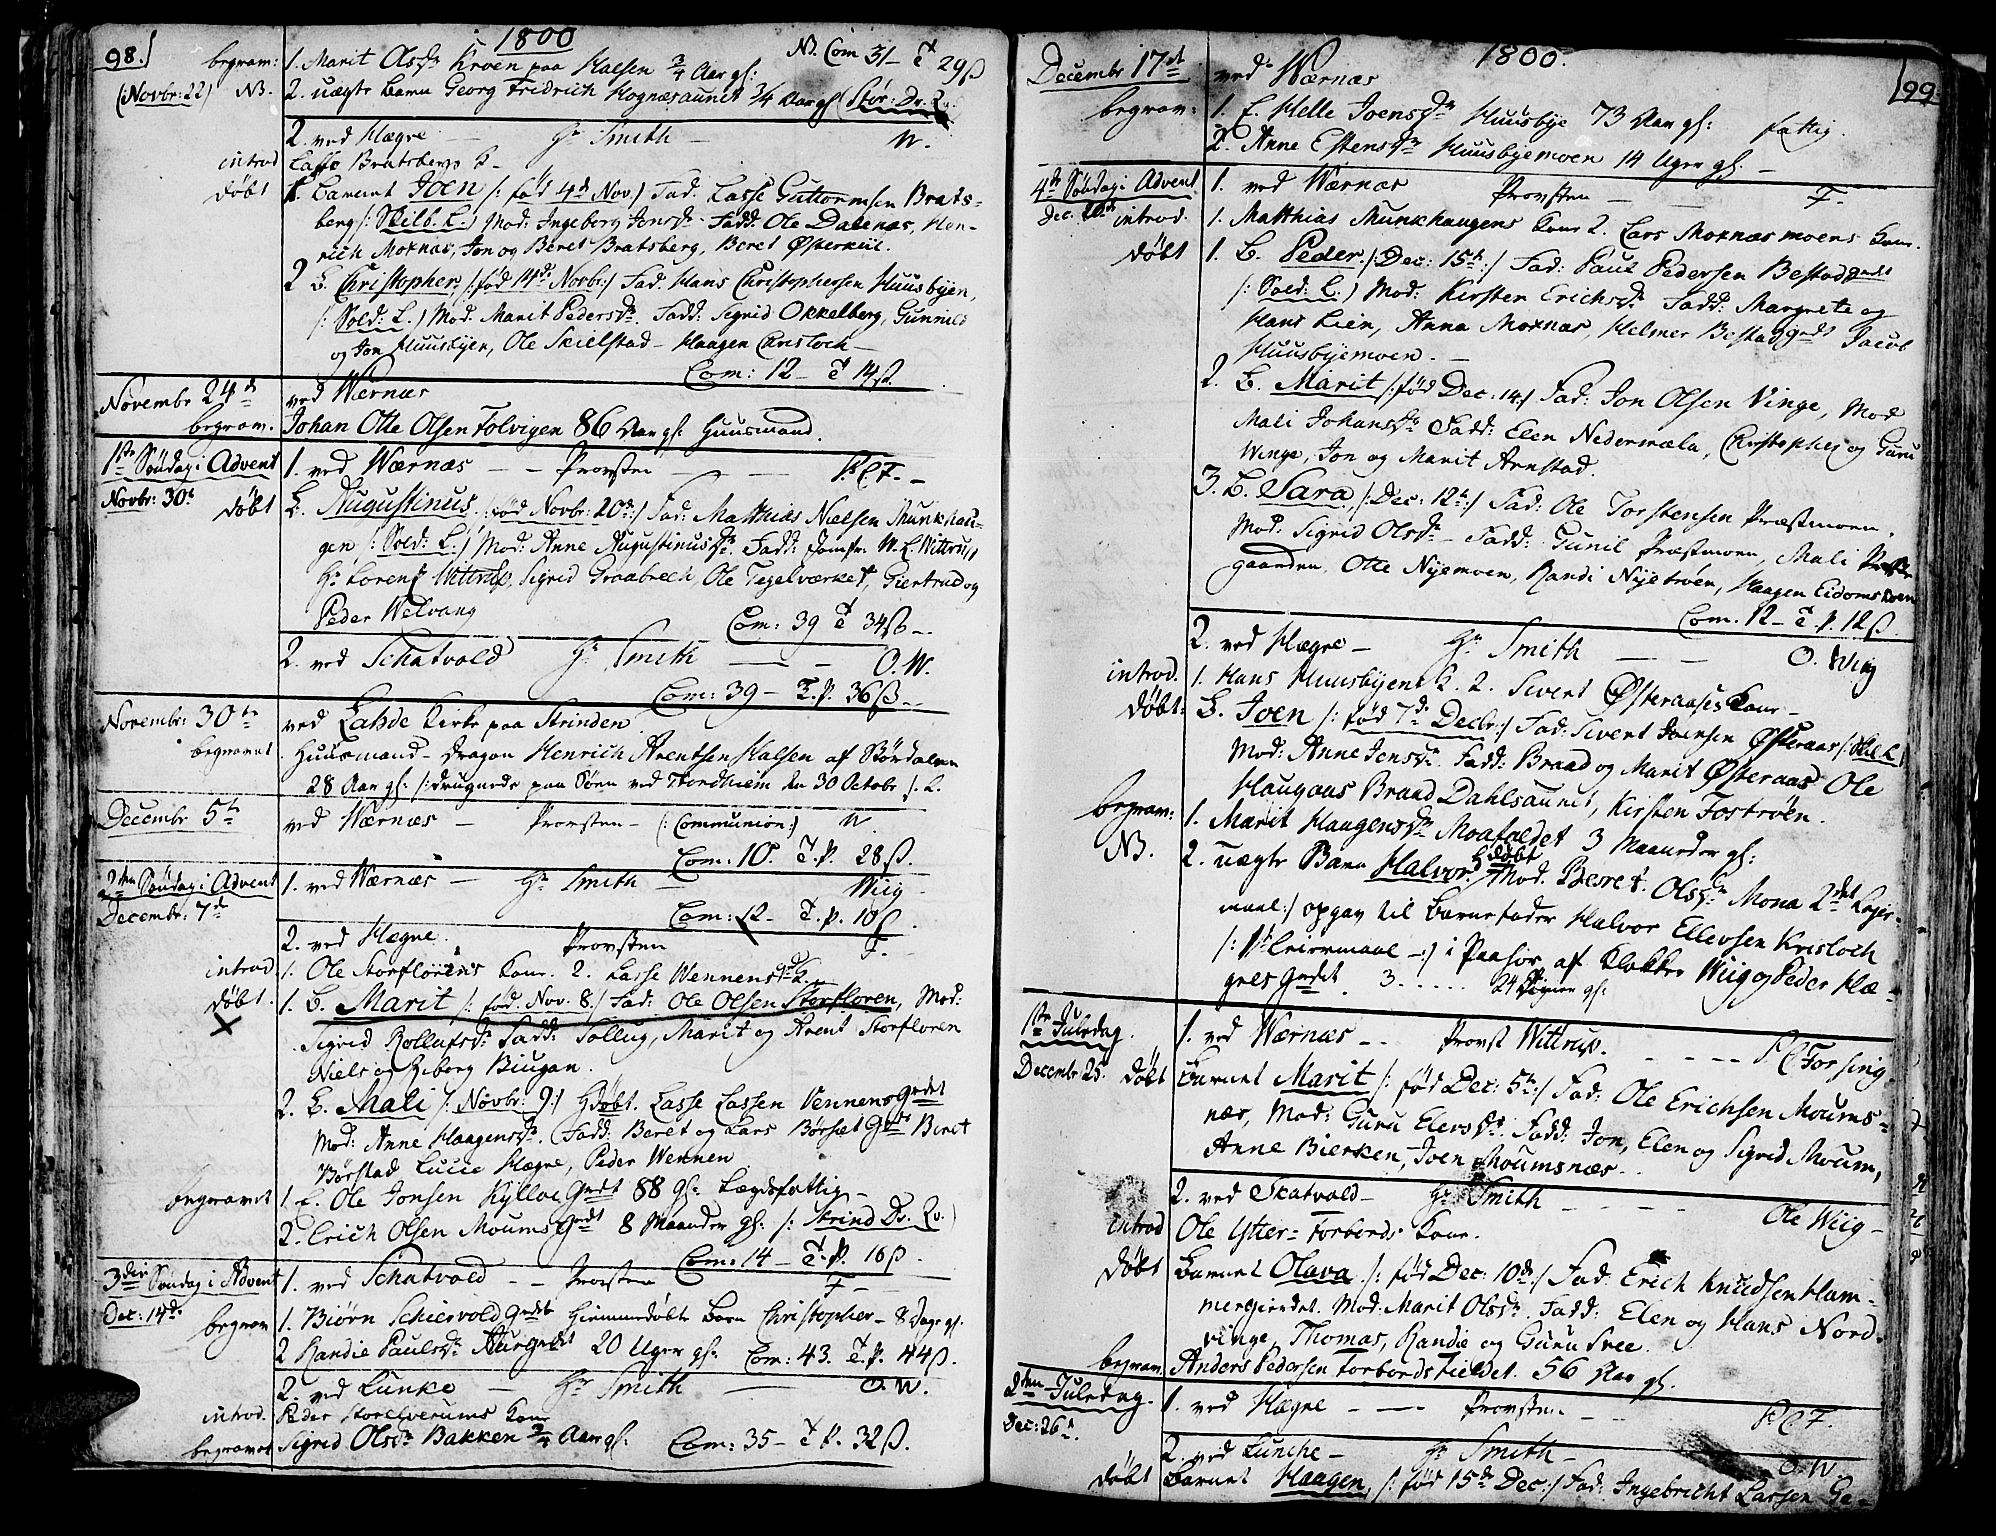 98.
1800
begrav: 1. Marit Olsdr Kroen paa Halsen 3/4 Aar gl: N. Com 31 - T 29 ß
(Novbr: 22) NB. 2. uægte Barn Georg Fridrich Hognæsaunet 3/4 Aar gl (Stør: Dr. Qv.
2. ved Hægre - Hr Smith - W.
introd Lasse Bratsbergs K -
døbt 1. Barnet Joen /: født 4de Nov:/ Fad: Lasse Guttormsen Brats-
berg /: Skilb. L:/ Mod: Ingeborg Jensdr Fadd: Ole Dalenæs, Hen-
rich Moxnæs, Jon og Beret Bratsberg, Beret Østerkiil.
2 B. Christopher /: fød 14de Novbr:/ Fad: Hans Christophersen Huusbyen,
/: Sold: L:/ Mod: Marit Pedersdr. Fadd: Sigrid Okkelberg, Gunnild
og Jon Huusbyen, Ole Skielstad - Haagen Ersloch -
Com: 12 - T 14 ß.
Novembr 24de ved Wærnæs
begrav. Johan Otte Olsen Tolvigen 86 Aar gl: Huusmand.
1ste Søndag i Advent 1. ved Wærnæs - - Provsten - - P.C.F. -
Novbr: 30te døbt B. Augustinus /: fød Novbr: 20de:/ Fad: Matthias Nielsen Munkhau-
gen /: Sold: L:/ Mod: Anne Augustinusdr. Fadd: Jomfr: W. L. Wittrup,
Hr Lorentz Wittrup, Sigrid Graabrech, Ole Tegelværket, Giertrud og
Peder Welvang Com: 39 T 34 ß -.
2. ved Schatvold Hr Smith - - O. W.
Com: 39 - T. P. 36 ß -
Novembr: 30te ved Lahde Kirke paa Strinden
begravet Huusmand - Dragon Henrich Arentsen Halsen af Størdalen
28 Aar gl: /: druknede paa Søen ved Trondhiem den 30 Octobr /. L.
Decembr 5te ved Wærnæs - Provsten - (: Communion:) W.
Com: 10. T. P. 28 ß.
2den Søndag i Advent 1. ved Wærnæs - Hr Smith - Wiig -
Decembr: 7de Com: 12 - T. P. 10 ß.
2. ved Hægre. Provsten F. -
introd. 1. Ole Storflorens Kone. 2. Lasse Wennensgrdts K.
døbt. 1. B. Marit /: fød. Nov. 8:/ Fad: Ole Olsen Storfloren, Mod:
Sigrid Rollafsdr Fadd: Tollug, Marit og Arent Storfloren
Niels og Ziborg Biugan.
2. B. Mali /: Novbr: 9:/ Hdøbt. Lasse Lassen Vennensgrdet
Mod: Anne Haagensdr. Fadd: Beret og Lars Børsætgrdt Beret
Børstad Lucie Hægre, Peder Wennen
begravet 1. E. Ole Jonsen Kylloegrdt 88 gl: Lægdsfattig -
2. Erich Olsen Moumsgrdt 8 Maaneder gl: /: Strind Dr. Qv.)
Com: 14 - T. P. 16 ß.
3die Søndag i Advent 1. ved Schatvold - - Provsten F -
Dec: 14de begrav 1. Biørn Schiervoldgrdet Hiemmedøbte Barn Christopher - 8 Dage gl.
2 Randie Paulsdr Aurgrdet 20 Uger gl: Com: 43. T. P. 44 ß.
2. ved Lunke - Hr Smith - O. W.
introd. Peder Storelverums Kone
begravet Sigrid Olsdr Bakken 3/4 Aar gl: Com: 35 - T P. 32 ß.
1800.
99
Decembr 17de ved Wærnæs
begrav: 1. E. Helle Joensdr Huusbye 73 Aar gl: fattig.
2. Anne Estensdr Huusbyemoen 14 Uger gl: -
4de Søndag i Advent 1. ved Wærnæs Provsten - - F.
Dec. introd. 1. Matthias Munkhaugens Kone 2. Lars Moxnæsmoens Kone.
døbt 1. B. Peder /: Dec: 15de:/ Fad: Paul Pedersen Bestadgrdt
/: Sold: L:/ Mod: Kirsten Erichsdr Fadd: Margrete og
Hans Lien, Anna Moxnæs, Helmer Bestadgrdt Jacob
Huusbyemoen. -
2. B. Marit /: fød Dec: 14:/ Fad: Jon Olsen Vinge, Mod
Mali Johansdr Fadd: Elen Nedermæla, Christopher og Guru
Winge, Jon og Marit Arnstad.
3. B. Sara, /: Dec: 12te:/ Fad: Ole Torstensen Præstmoen,
Mod: Sigrid Olsdr - Fadd: Gunil Præstmoen, Mali Præste-
gaarden, Otte Nyemoen, Randi Nyetrøen, Haagen Eidomsmoen
Com. 12 - T. P. 12 ß.
2. ved Hægre - Hr Smith - - O. Wiig
introd. 1. Hans Huusbyens K. 2. Sivert Østeraases Kone -
døbt: B. Joen /: fød 7de Decbr:/ Fad: Sivert Joensen Østeraas /: Skil. L.
Mod: Anne Jensdr. Fadd: Braad og Marit Østeraas Ole
Haugaas Braad Dahlsaunet, Kirsten Fostrøen.
begrav: 1. Marit Haagensdr Moafaldet 3 Maaneder gl:
NB. 2. uægte Barn Halvor Hdøbt /: Mod. Beret Olsdr Mona 2det Leier-
maal:/ opgav til Barnefader Halvor Ellevsen Krisloch
/: 1ste Leiermaal -:/ i Paasyn af Klokker Wiig og Peder Hæ-
gresgrdet. 3. . . . . . 24 Uger gl:
1ste Juledag. 1. ved Wærnæs - - Provst Wittrup. - - - - P C Forsing
Decembr 25. døbt Barnet Marit /: fød Dec: 5te:/ Fad: Ole Erichsen Moums-
næs, Mod: Guru Elersdr. Fadd: Jon, Elen og Sigrid Moum,
Anne Bierken, Joen Moumsnæs.
2. ved Skatvold - Hr Smith - - - - Ole Wiig -
introd Ole Ytter-Forbords Kone.
døbt Barnet Olava /: fød Dec: 10de:/ Fad: Erich Knudsen Ham-
mergierdet. Mod: Marit Olsdr. Fadd: Elen og Hans Nord-
vinge, Thomas, Randie og Guru Sree.
begrav Anders Pedersen Forbordsfieldet. 56 Aar gl.
2den Juledag. 1. ved Hægre - - - Provsten - - P C F.
Dec: 26de.
2. ved Lunche - Hr Smith - O. W.
døbt Barnet Haagen, /: fød 15de Dec:/ Fad: Ingebricht Lassen Ge-